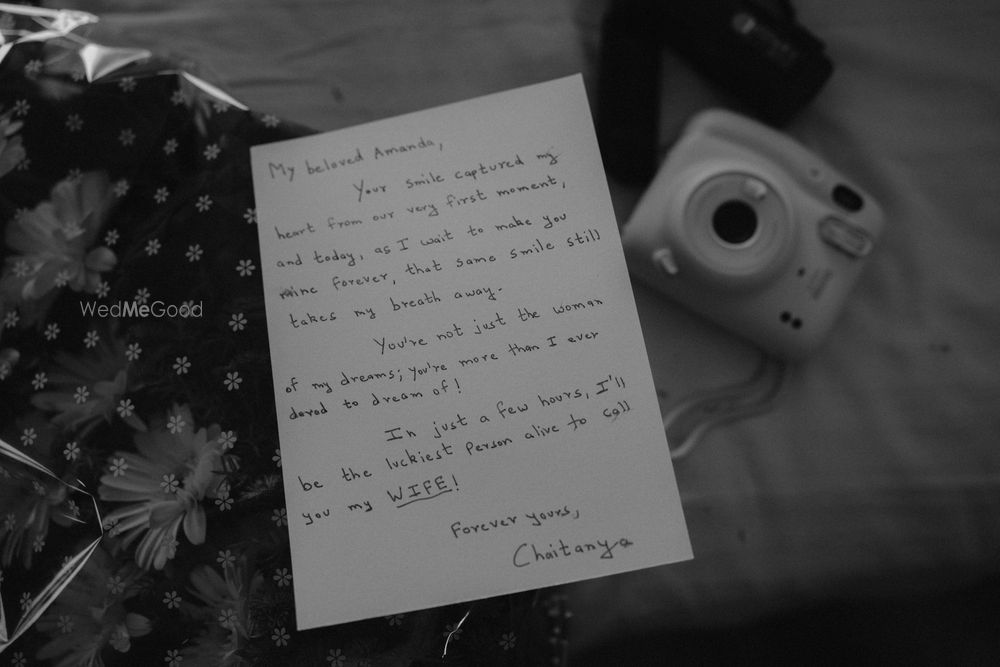 My beloved Amanda,
Your smile captured my
heart from our very first moment,
and today, as I wait to make you
mine forever, that same smile still
takes my breath away.
You're not just the woman
of my dreams; you're more than I ever
dared to dream of!
In just a few hours, I'll
be the luckiest person alive to call
you my WIFE!
Forever yours,
Chaitanya
WedMeGood